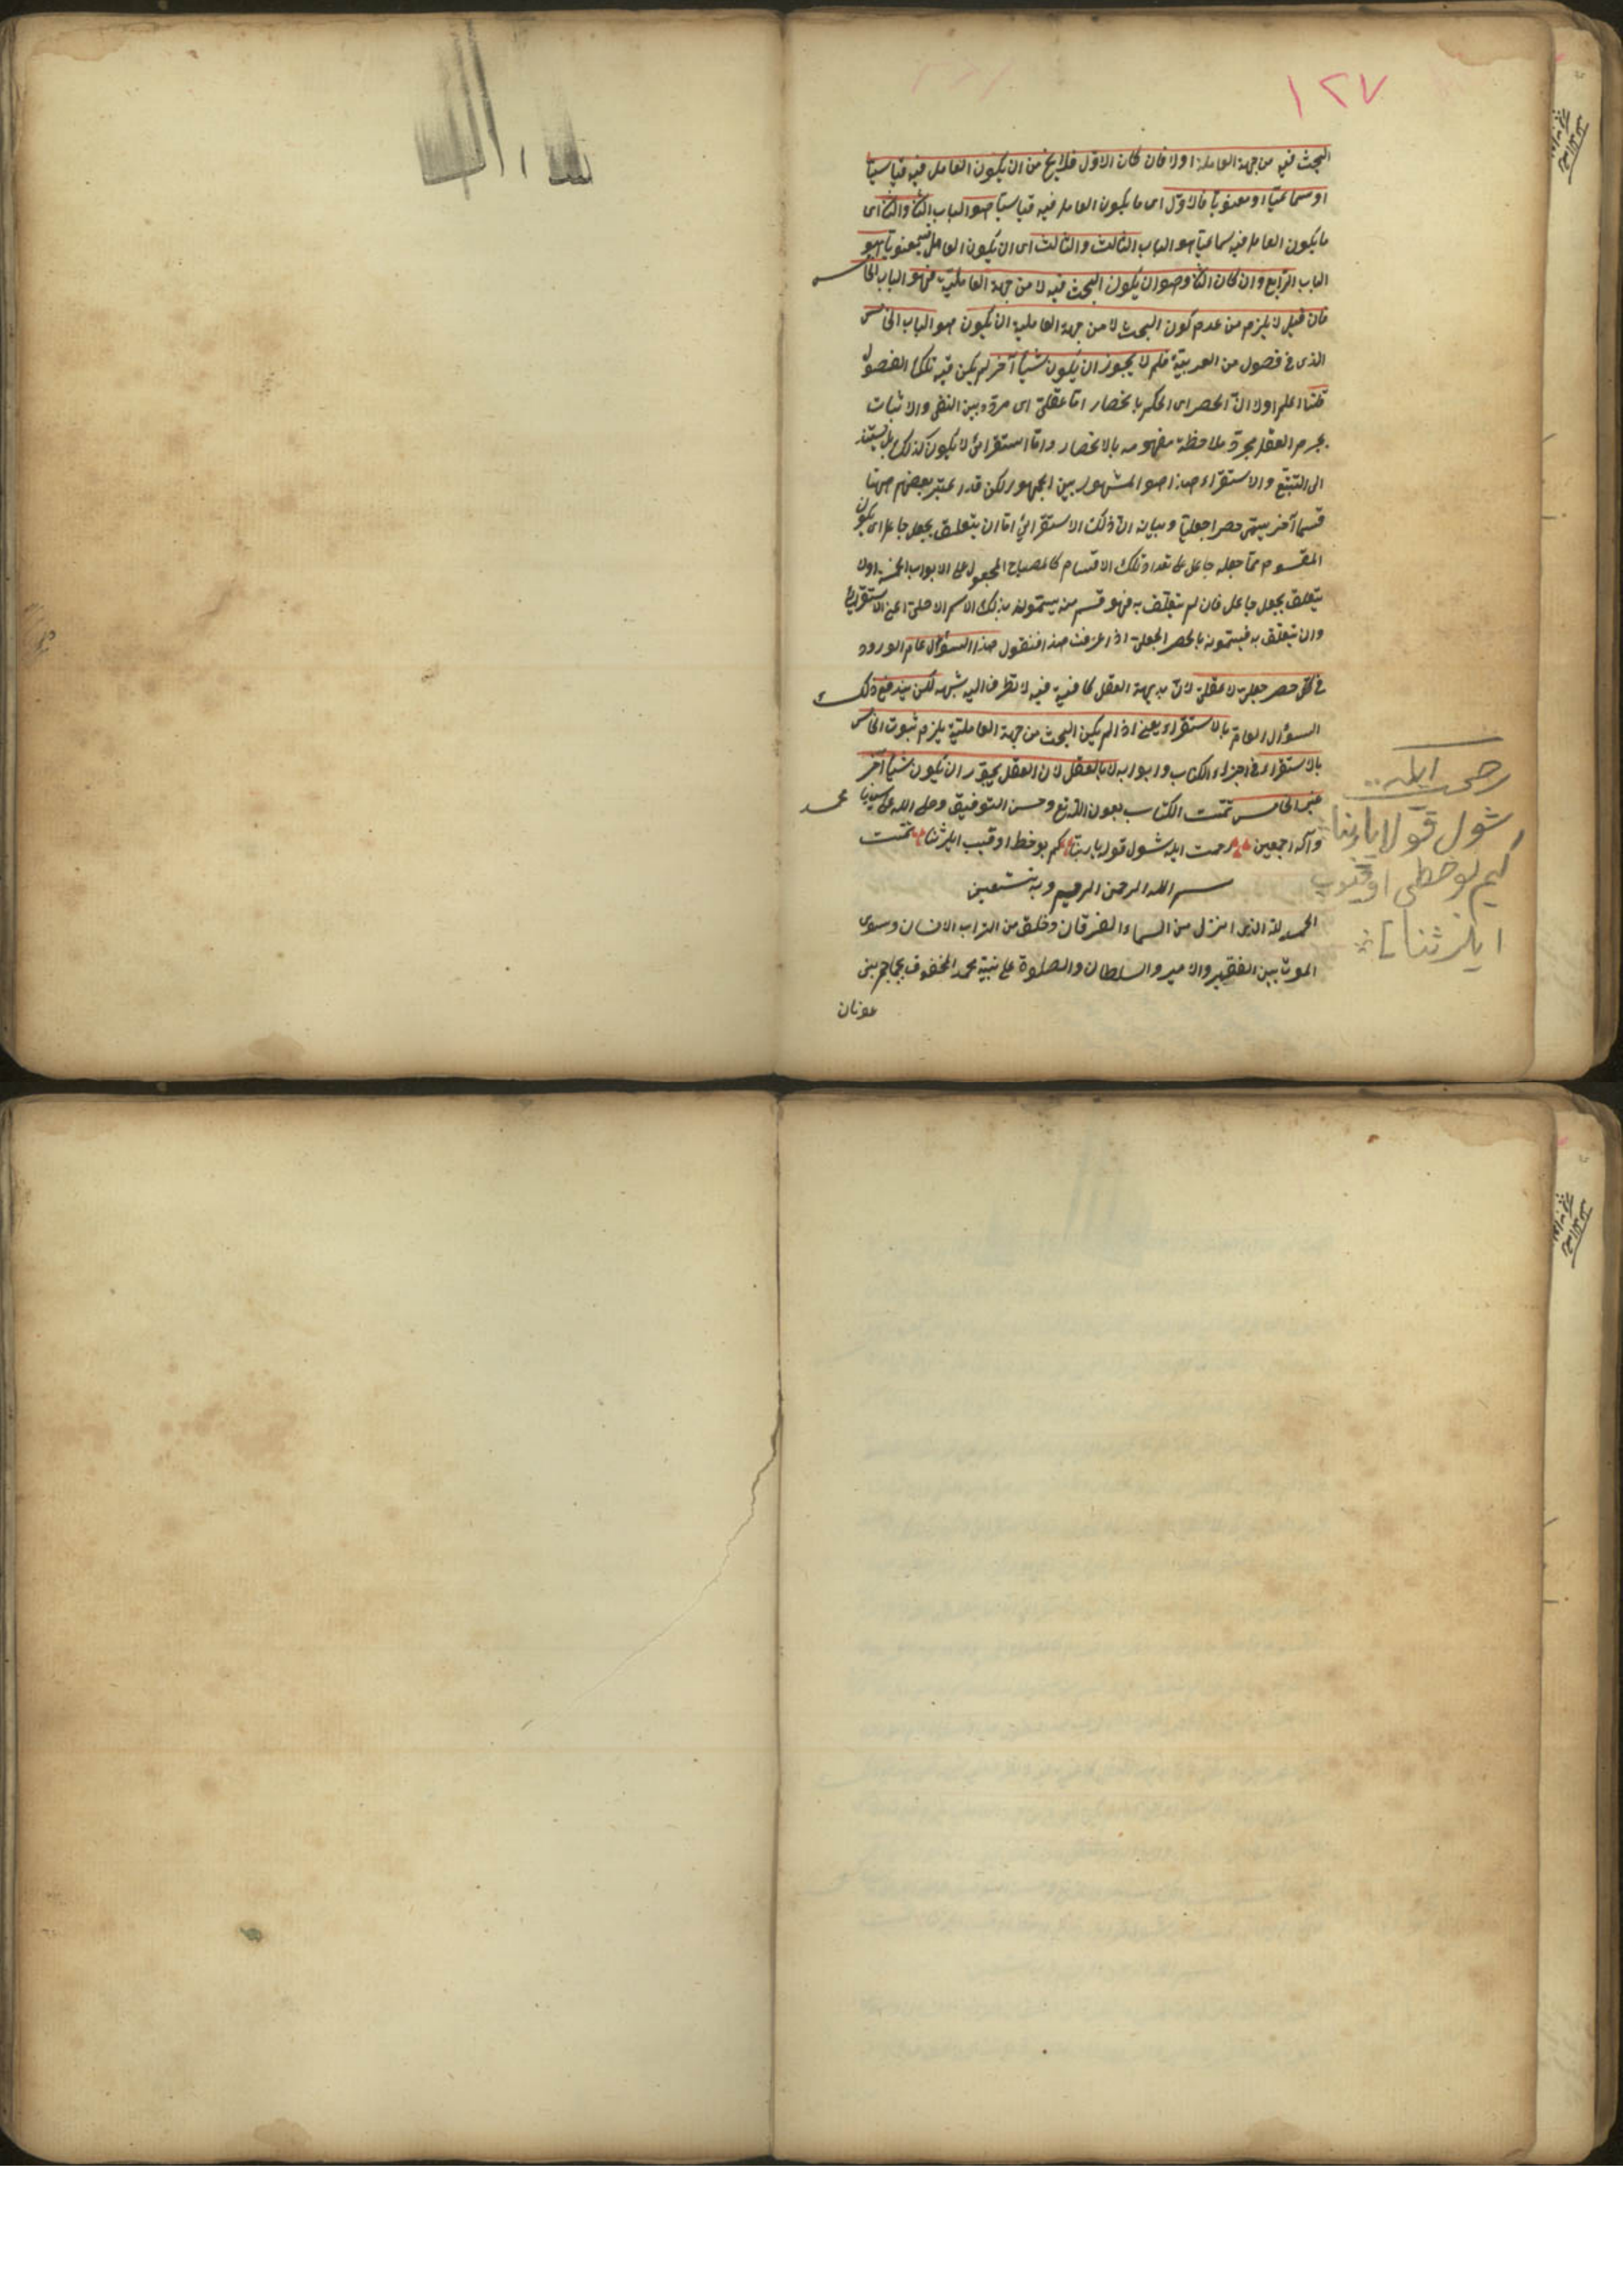 ١٢٧
البحث فيه من جهة العاملة اولا فان كان الاوّل فلا يخ من ان يكون العامل فيه قياسيّا
او سماعيّا او معنويّا فالاوّل اى ما يكون العامل فيه قياسيّا هو الباب الثا والثا اى
ما يكون العامل فيه سماعيّا هو الباب الثالث والثالث اى ان يكون العامل فيه معنويّا هو
الباب الرّابع وان كان الثا وهو ان يكون البحث فيه لا من جهة العامليّة فهو الباب الخامس
فان قيل لا يلزم من عدم كون البحث لا من جهة العاملية ان يكون هو الباب الخامس
الذى فى فصول من العربيّة فلم لا يجوز ان يكون شيئا آخر لم يكن فيه تلك الفصول
قلنا اعلم اولا انّ الحصر اى الحكم بالانحصار امّا عقلىّ اى مردّد بين النفى والاثبات
يجزم العقل بمجرّد ملاحظة مفهومه بالانحصار وامّا استقرائى لا يكون كذلك بل يستند
الى التتبّع والاستقراء هذا هو المشهور بين الجمهور لكن قد اعتبر بعضهم ههنا
قسما آخر يسمّى حصرا جعليّا وبيانه انّ ذلك الاستقرائى امّا ان يتعلّق بجعل جاعل اى يكون
المقسوم ممّا جعله جاعل على تعداد تلك الاقسام كالمصباح المجعول على الابواب الخمسة اولا
يتعلّق بجعل جاعل فان لم يتعلّق به فهو قسم منه يسمّونه بذلك الاسم الاصلى اعنى الاستقرائى
وان يتعلّق به فيسمّونه بالحصر الجعلى اذا عرفت هذا فنقول هذا السؤال عام الورود
فى كلّ حصر جعلى لا عقلى لانّ بديهة العقل كافية فيه لا تطرق اليه شبهه لكن يندفع ذلك
السؤال العام بالاستقراء يعنى اذا لم يكن البحث من جهة العامليّة يلزم ثبوت الخامس
بالاستقراء فى اجزاء الكتاب وابوابه لا بالعقل لان العقل يجوّز ان يكون شيئا آخر
غير الخامس تمّت الكتاب بعون اللّه تع وحسن التوفيق وصلى اللّه على سيدنا محمد
وآله اجمعين رحمت ايله شول قوله يا ربنا كم بو خطى اوقيب ايلر ثنا تمّت
بسم اللّه الرحمن الرحيم وبه نستعين
الحمد للّه الذى انزل من السماء الفرقان وخلق من التراب الانسان وسوى
الموت بين الفقير والامير والسلطان والصلوة على نبيّه محمد المخفوف بجماجم بنى
عدنان
رحمت ايله
شول قولا يا ربنا
كيم بو خطى اوقيوب
ايلر ثنا